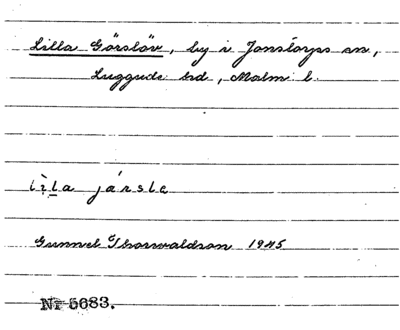 Lilla Görslöv, by i Jonstorps sn,
Luggude hd, Malm. l.
ìl̥a járslɛ
Gunnel Thorwaldson 1945
Nr 5683.